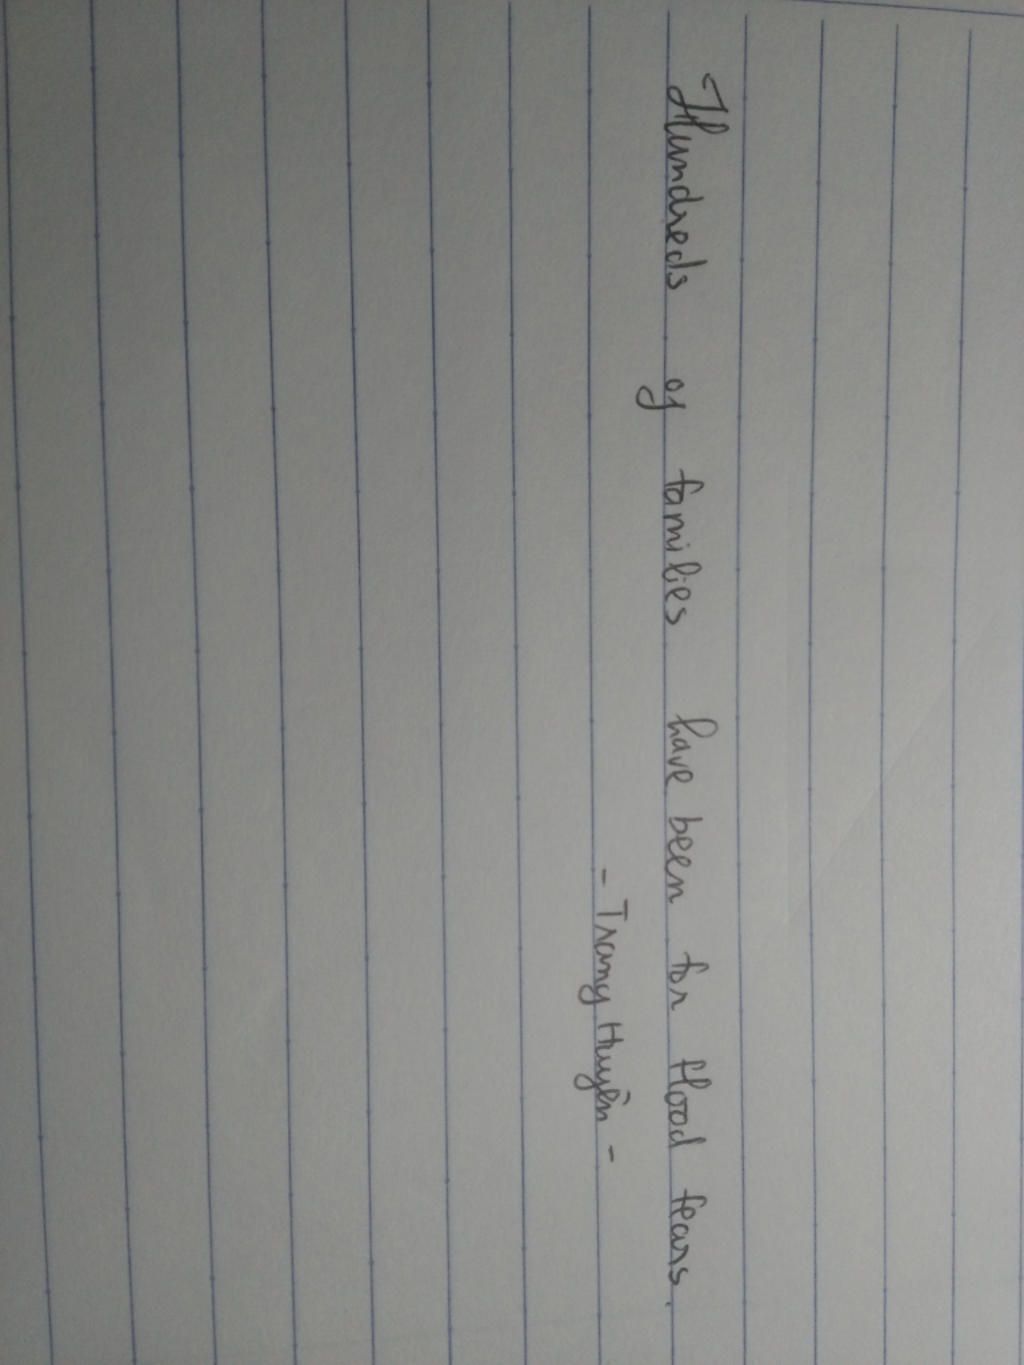 Hundreds of families have been for flood fears.
- Trang Huyền -